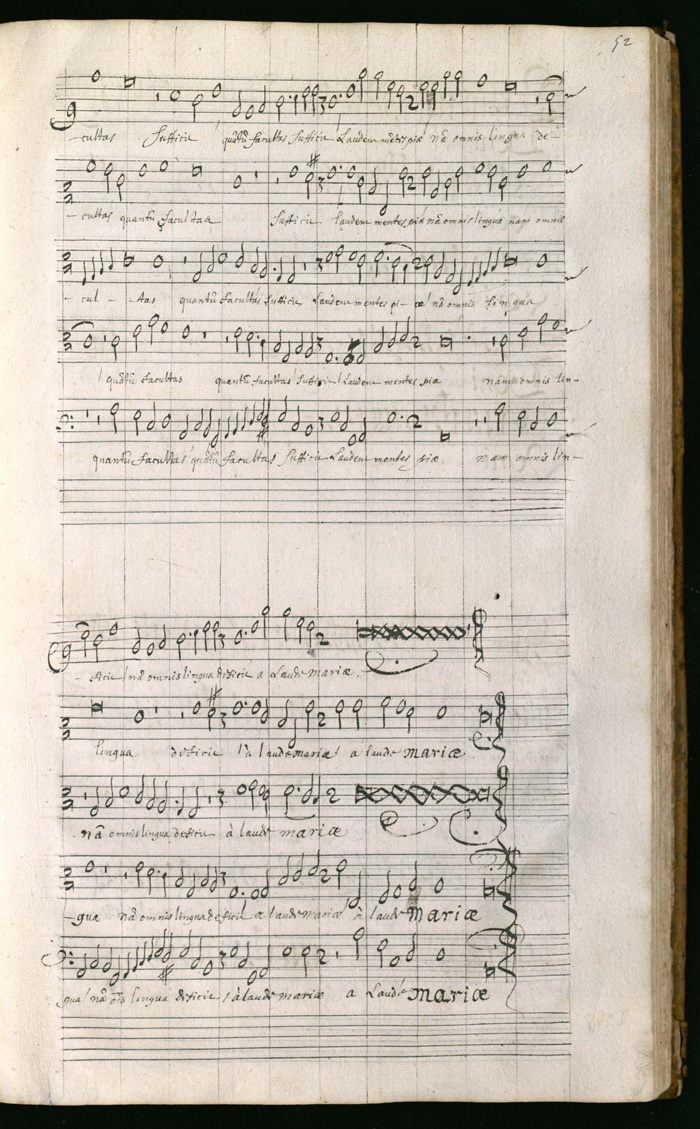 52
-cultas Sufficit quãtũ facultas Sufficit Laudem mẽtis piæ nã omnis lingua de-
-cultas quantũ facultas Sufficit Laudem mentes piæ nã omnis lingua nam omnis
-cul-tas quantũ facultas Sufficit Laudem mentes pi-æ nã omnis lingua
quãtũ facultas quantũ facultas Sufficit Laudem mentes piæ nam omnis lin-
quantũ facultas quãtũ facultas Sufficit Laudem mentes piæ nam omnis lin-
-ficit nã omnis lingua deficit a Laude mariæ.
lingua deficit à laude mariæ a laude mariæ
nã omnis lingua deficit à laude mariæ
-gua nã omnis lingua deficit a laude mariæ à laude mariæ
gua nã oĩs lingua deficit à laude mariæ a Laude mariæ